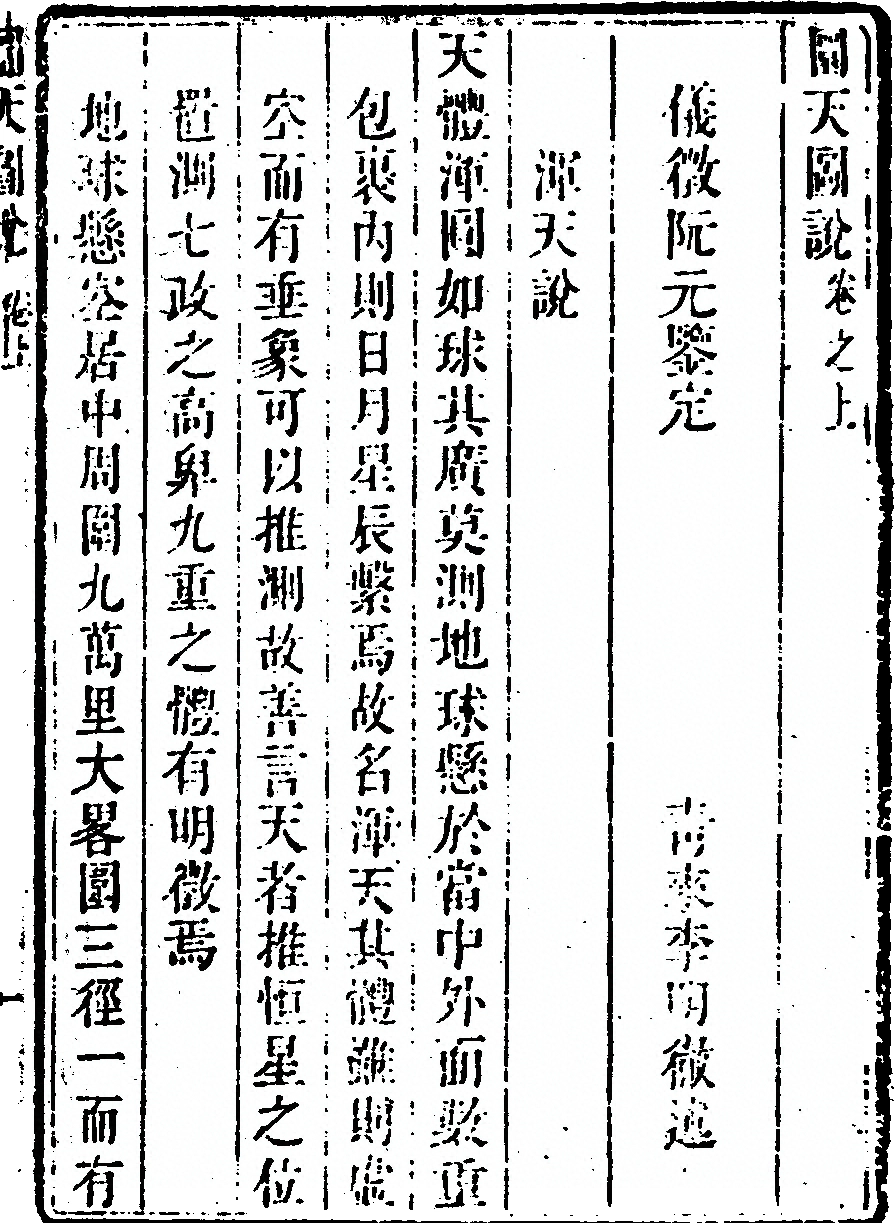 圜天圖說卷之上
儀徵阮元鑒定 青來李明徹述
渾天說
天體渾圓如球其廣莫測地球懸於當中外面數重
包裹內則日月星辰繫焉故名渾天其體雖則虛
空而有垂象可以推測故善言天者推恒星之位
置測七政之高卑九重之體有明徵焉
地球懸空居中周圍九萬里大畧圍三徑一而有
圜天圖說 卷上 一